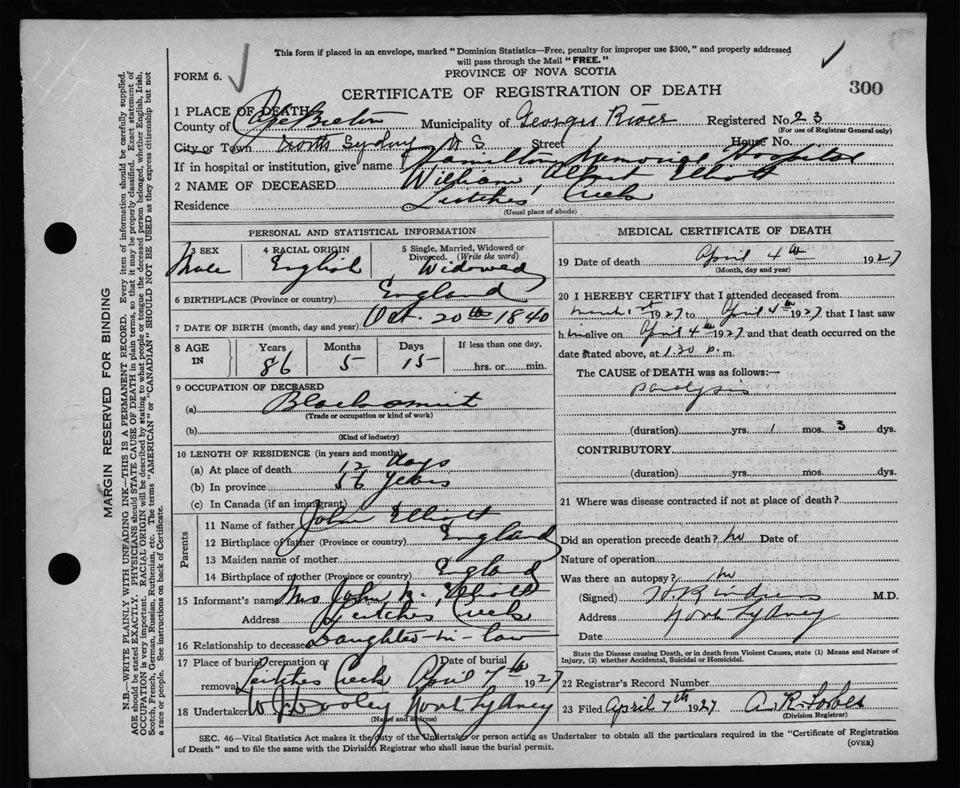 This form if placed in an envelope, marked "Dominion Statistics—Free, penalty for improper use $300," and properly addressed
will pass through the Mail "FREE."
FORM 6.
PROVINCE OF NOVA SCOTIA
CERTIFICATE OF REGISTRATION OF DEATH
300
1 PLACE OF DEATH
County of Cape Breton Municipality of Georges River Registered No. 23
(For use of Registrar General only)
City or Town North Sydney N.S. Street House No.
If in hospital or institution, give name Hamilton Memorial Hospital
2 NAME OF DECEASED William Albert Elliott
Residence Leitches Creek
(Usual place of abode)
PERSONAL AND STATISTICAL INFORMATION
3 SEX 4 RACIAL ORIGIN 5 Single, Married, Widowed or
Divorced. (Write the word)
Male English Widowed
6 BIRTHPLACE (Province or country) England
7 DATE OF BIRTH (month, day and year) Oct. 20th 1840
8 AGE IN Years Months Days If less than one day,
86 5 15 hrs. or min.
9 OCCUPATION OF DECEASED
(a) Blacksmith
(Trade or occupation or kind of work)
(b)
(Kind of industry)
10 LENGTH OF RESIDENCE (in years and months)
(a) At place of death 12 days
(b) In province 56 years
(c) In Canada (if an immigrant)
Parents
11 Name of father John Elliott
12 Birthplace of father (Province or country) England
13 Maiden name of mother
14 Birthplace of mother (Province or country) England
15 Informant's name Mrs John Elliott
Address Leitches Creek
16 Relationship to deceased Daughter-in-law
17 Place of burial cremation or Date of burial
removal Leitches Creek April 7th 1927
18 Undertaker W. J. Dooley North Sydney
(Name and address)
MEDICAL CERTIFICATE OF DEATH
19 Date of death April 4th 1927
(Month, day and year)
20 I HEREBY CERTIFY that I attended deceased from
March 1st 1927 to April 4th 1927 that I last saw
him alive on April 4th 1927 and that death occurred on the
date stated above, at 1.30 p. m.
The CAUSE OF DEATH was as follows:—
paralysis
(duration) yrs. 1 mos. 3 dys.
CONTRIBUTORY
(duration) yrs. mos. dys.
21 Where was disease contracted if not at place of death?
Did an operation precede death? no Date of
Nature of operation
Was there an autopsy? no
(Signed) M.D.
Address North Sydney
Date
State the Disease causing Death, or in death from Violent Causes, state (1) Means and Nature of
Injury, (2) whether Accidental, Suicidal or Homicidal.
22 Registrar's Record Number
23 Filed April 7th 1927 A. R. Forbes
(Division Registrar)
SEC. 46—Vital Statistics Act makes it the duty of the Undertaker or person acting as Undertaker to obtain all the particulars required in the "Certificate of Registration
of Death" and to file the same with the Division Registrar who shall issue the burial permit.
(OVER)
MARGIN RESERVED FOR BINDING
N.B.—WRITE PLAINLY WITH UNFADING INK—THIS IS A PERMANENT RECORD. Every item of information should be carefully supplied.
AGE should be stated EXACTLY. PHYSICIANS should STATE CAUSE OF DEATH in plain terms, so that it may be properly classified. Exact statement of
OCCUPATION is very important. RACIAL ORIGIN will be described by stating to what people or tongue the deceased person belonged, whether English, Irish,
Scotch, French, German, Russian, Ruthenian, etc. The terms "AMERICAN" or "CANADIAN" SHOULD NOT BE USED as they express citizenship but not
a race or people. See instructions on back of Certificate.